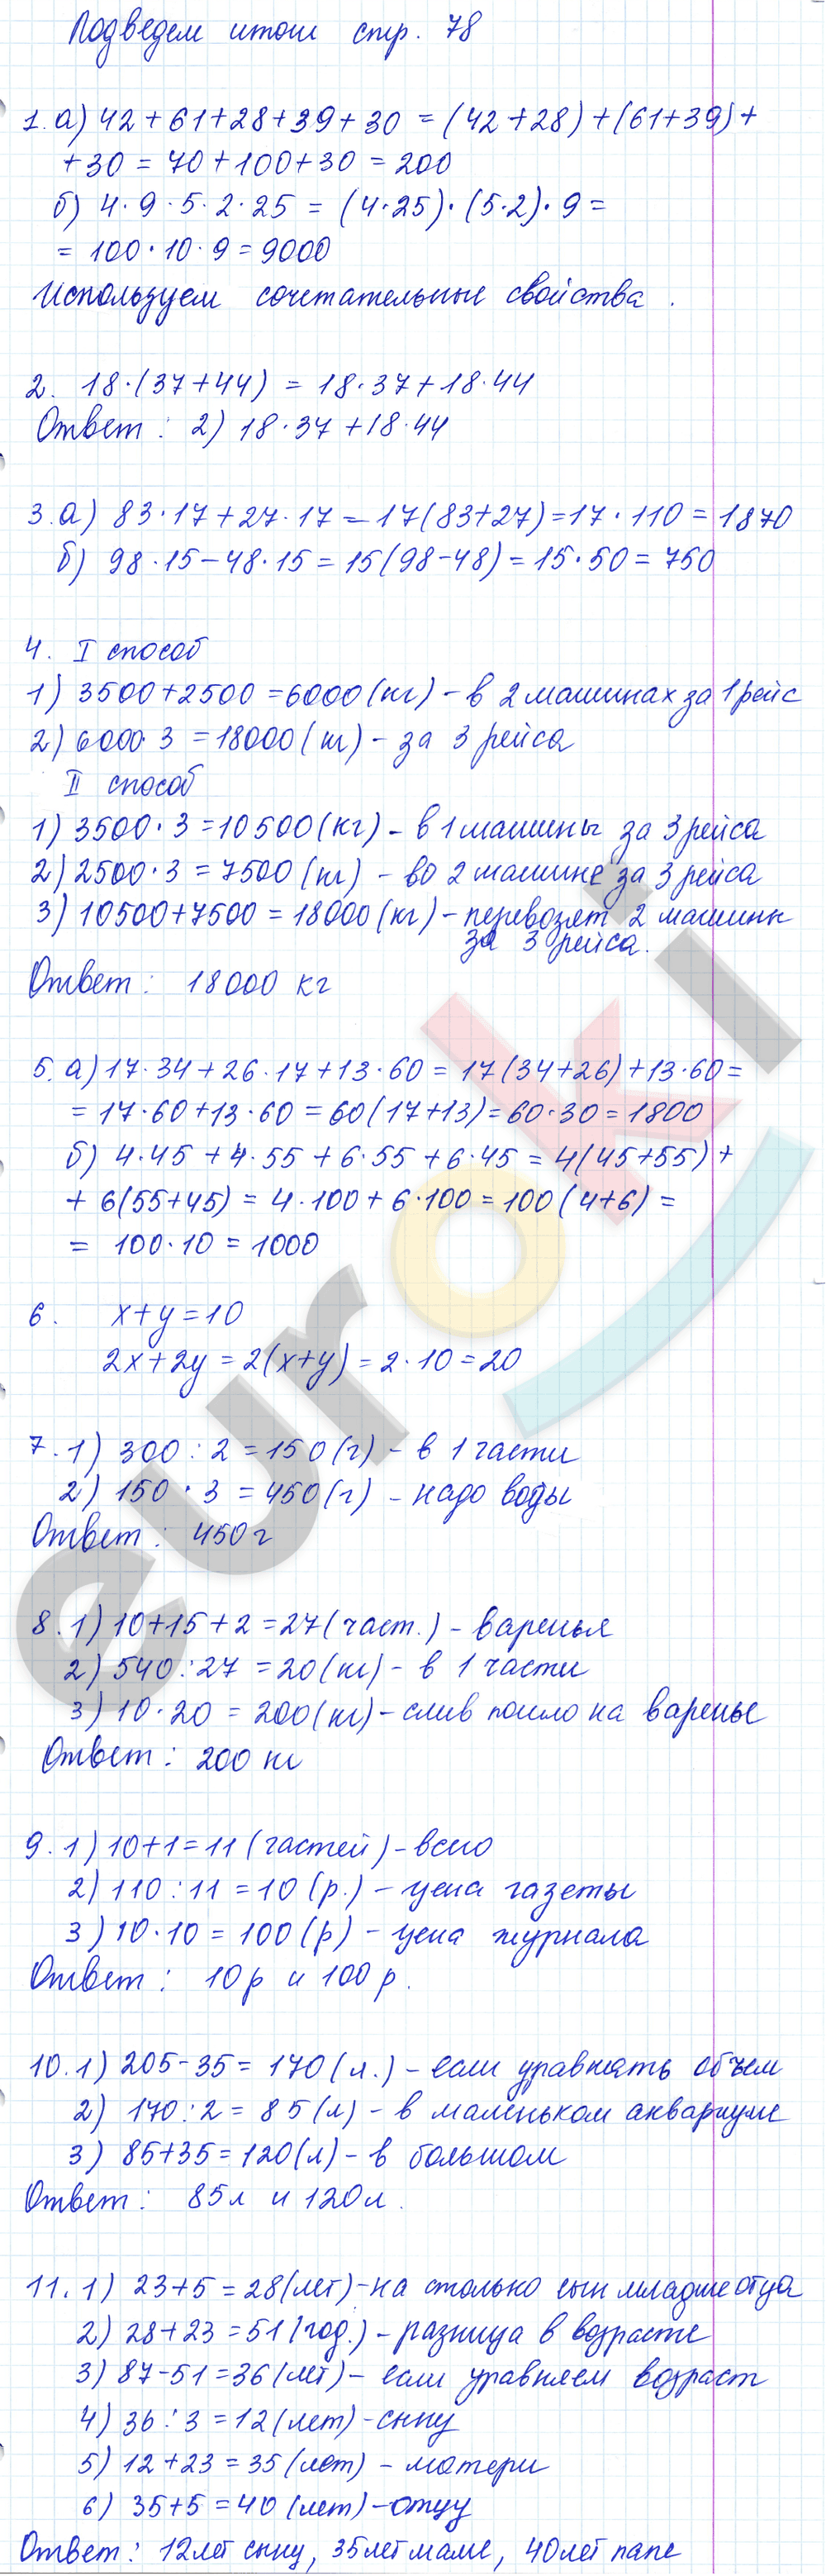 Подведем итоги стр. 78
1. а) 42 + 61 + 28 + 39 + 30 = (42 + 28) + (61 + 39) +
+ 30 = 70 + 100 + 30 = 200
б) 4 · 9 · 5 · 2 · 25 = (4 · 25) · (5 · 2) · 9 =
= 100 · 10 · 9 = 9000
Используем сочетательные свойства.
2. 18 · (37 + 44) = 18 · 37 + 18 · 44
Ответ: 2) 18 · 37 + 18 · 44
3. а) 83 · 17 + 27 · 17 = 17(83 + 27) = 17 · 110 = 1870
б) 98 · 15 - 48 · 15 = 15(98 - 48) = 15 · 50 = 750
4. I способ
1) 3500 + 2500 = 6000 (кг) - в 2 машинах за 1 рейс
2) 6000 3 = 18000 (кг) - за 3 рейса
II способ
1) 3500 · 3 = 10500 (кг) - в 1 машины за 3 рейса
2) 2500 · 3 = 7500 (кг) - во 2 машине за 3 рейса
3) 10500 + 7500 = 18000 (кг) - перевозят 2 машины
за 3 рейса.
Ответ: 18000 кг
5. а) 17 · 34 + 26 · 17 + 13 · 60 = 17(34 + 26) + 13 · 60 =
= 17 · 60 + 13 · 60 = 60(17 + 13) = 60 · 30 = 1800
б) 4 · 45 + 4 · 55 + 6 · 55 + 6 · 45 = 4(45 + 55) +
+ 6(55 + 45) = 4 · 100 + 6 · 100 = 100(4 + 6) =
= 100 · 10 = 1000
6. x + y = 10
2x + 2y = 2(x + y) = 2 · 10 = 20
7. 1) 300 : 2 = 150 (г) - в 1 части
2) 150 · 3 = 450 (г) - надо воды
Ответ: 450 г
8. 1) 10 + 15 + 2 = 27 (част.) - варенья
2) 540 : 27 = 20 (кг) - в 1 части
3) 10 · 20 = 200 (кг) - слив пошло на варенье
Ответ: 200 кг
9. 1) 10 + 1 = 11 (частей) - всего
2) 110 : 11 = 10 (р.) - цена газеты
3) 10 · 10 = 100 (р) - цена журнала
Ответ: 10 р и 100 р.
10. 1) 205 - 35 = 170 (л.) - если уравнять объем
2) 170 : 2 = 85 (л) - в маленьком аквариуме
3) 85 + 35 = 120 (л) - в большом
Ответ: 85 л и 120 л.
11. 1) 23 + 5 = 28 (лет) - на столько сын младше отца
2) 28 + 23 = 51 (год.) - разница в возрасте
3) 87 - 51 = 36 (лет) - если уравняем возраст
4) 36 : 3 = 12 (лет) - сыну
5) 12 + 23 = 35 (лет) - матери
6) 35 + 5 = 40 (лет) - отцу
Ответ: 12 лет сыну, 35 лет маме, 40 лет папе
euroki